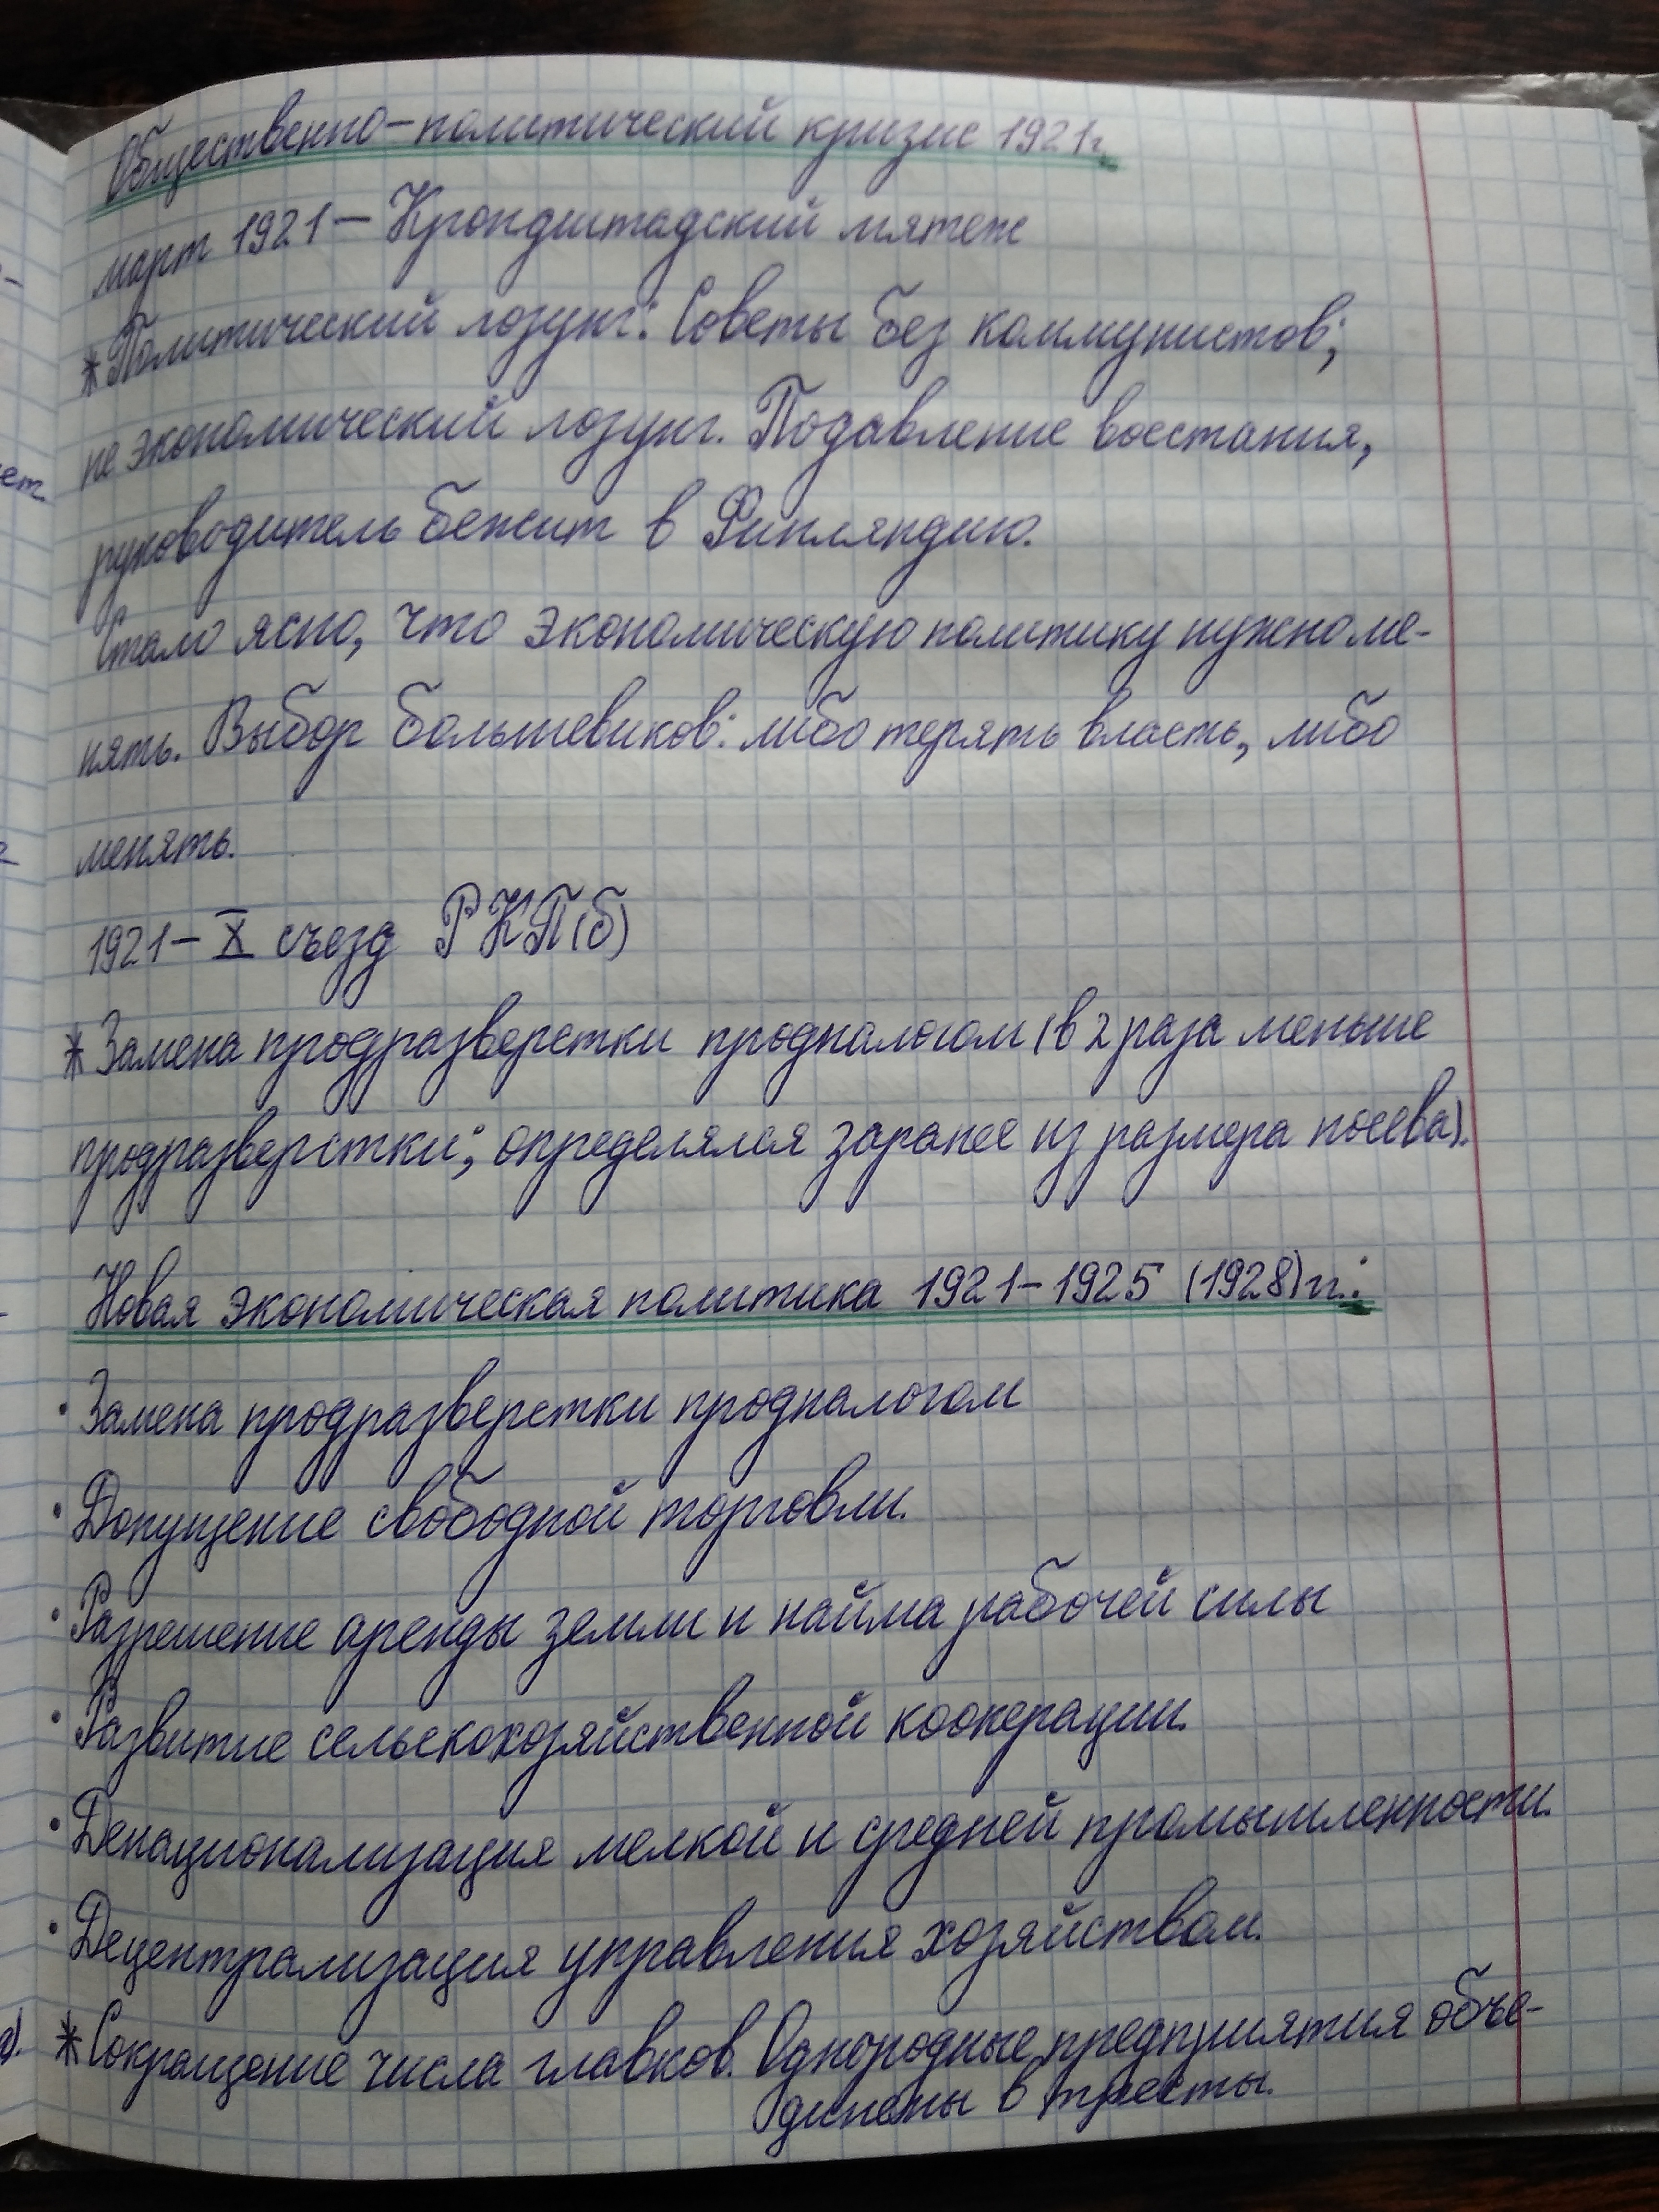 Общественно-политический кризис 1921г.
март 1921 – Крондштадский мятеж
* Политический лозунг: Советы без коммунистов;
не экономический лозунг. Подавление восстания,
руководитель бежит в Финляндию.
Стало ясно, что экономическую политику нужно ме-
нять. Выбор большевиков: либо терять власть, либо
менять.
1921 – X съезд РКП(б)
* Замена продразверстки продналогом (в 2 раза меньше
продразверстки; определялся заранее из размера посева).
Новая экономическая политика 1921-1925 (1928)гг.:
· Замена продразверстки продналогом
· Допущение свободной торговли.
· Разрешение аренды земли и найма рабочей силы
· Развитие сельскохозяйственной кооперации.
· Денационализация мелкой и средней промышленности.
· Децентрализация управления хозяйством.
* Сокращение числа главков. Однородные предприятия объе-
динены в тресты.